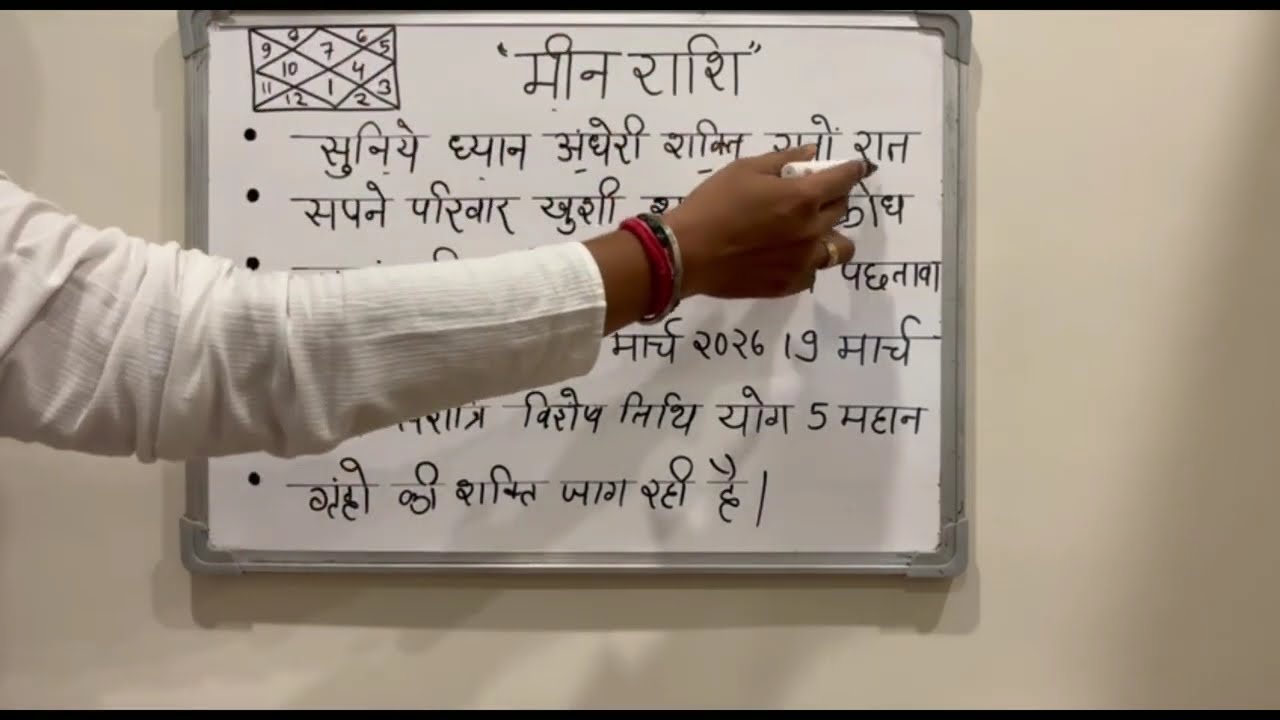 8 6
9 7 5
10 4
11 1 3
12 2
"मीन राशि"
सुनिये ध्यान अंधेरी शक्ति रातों रात
सपने परिवार खुशी क्रोध
पछतावा
मार्च २०२६ 19 मार्च
विशेष तिथि योग 5 महान
ग्रंहो की शक्ति जाग रही है।